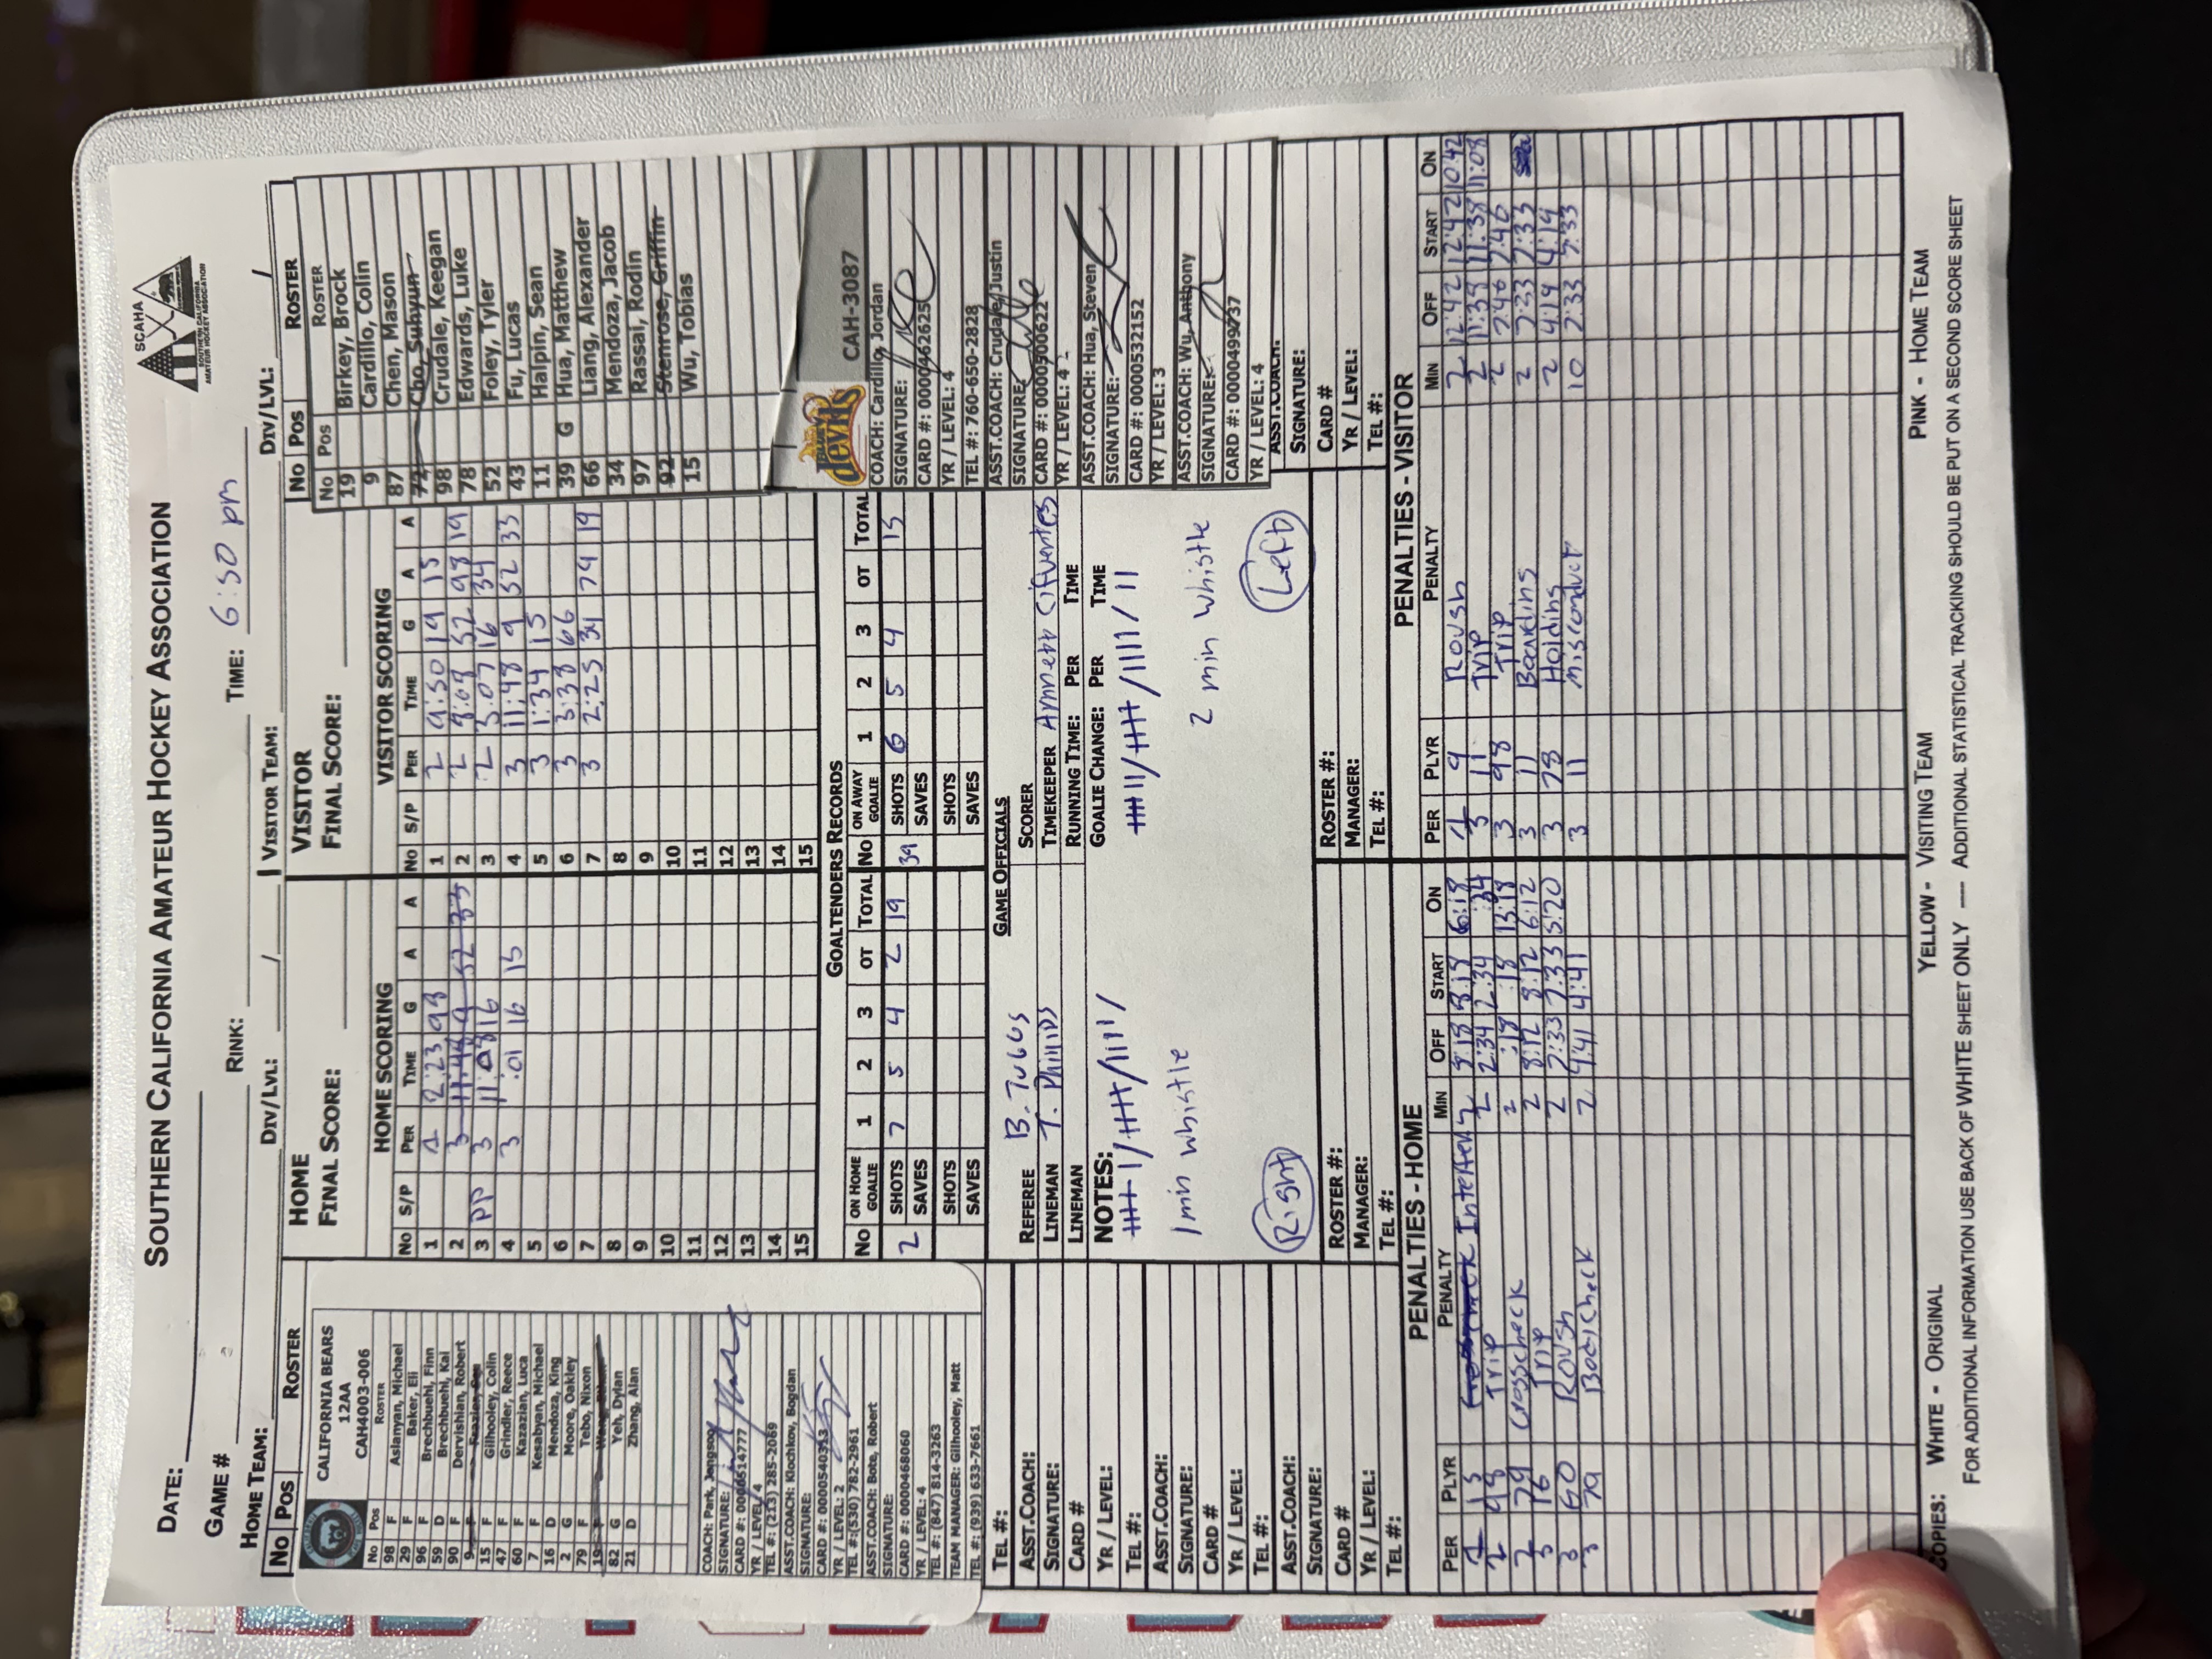 SCAHA
SOUTHERN CALIFORNIA AMATEUR HOCKEY ASSOCIATION
SOUTHERN CALIFORNIA AMATEUR HOCKEY ASSOCIATION
DATE:
GAME # RINK: TIME: 6:50 pm
HOME TEAM: DIV/LVL: / VISITOR TEAM: DIV/LVL: /
No Pos ROSTER
CALIFORNIA BEARS
12AA
CAH4003-006
No Pos ROSTER
98 F Aslanyan, Michael
29 F Baker, Eli
96 F Brechbuehl, Finn
59 D Brechbuehl, Kai
90 F Dervishian, Robert
9 F
15 F Gilhooley, Colin
47 F Grindler, Reece
60 F Kazazian, Luca
7 F Kesabyan, Michael
16 D Mendoza, King
2 G Moore, Oakley
79 F Tebo, Nixon
19 F
82 G Yeh, Dylan
21 D Zhang, Alan
COACH: Park, Jongsoo
SIGNATURE:
CARD #: 0000514777
YR / LEVEL: 4
TEL #: (213) 285-2069
ASST.COACH: Klochkov, Bogdan
SIGNATURE:
CARD #: 0000540353
YR / LEVEL: 2
TEL #:(530) 782-2961
ASST.COACH: Bote, Robert
SIGNATURE:
CARD #: 0000468060
YR / LEVEL: 4
TEL #: (847) 814-3263
TEAM MANAGER: Gilhooley, Matt
TEL #: (939) 633-7661
TEL #:
ASST.COACH:
SIGNATURE:
CARD #
YR / LEVEL:
TEL #:
ASST.COACH:
SIGNATURE:
CARD #
YR / LEVEL:
TEL #:
ASST.COACH:
SIGNATURE:
CARD #
YR / LEVEL:
TEL #:
HOME
FINAL SCORE:
HOME SCORING
No S/P PER TIME G A A
1 1 2:23 98
2 3 11:48 9 52 33
3 PP 3 11:08 16
4 3 :01 16 15
5
6
7
8
9
10
11
12
13
14
15
VISITOR
FINAL SCORE:
VISITOR SCORING
No S/P PER TIME G A A
1 2 9:50 19 15
2 2 8:08 52 98 19
3 2 3:07 16 34
4 3 11:48 9 52 33
5 3 1:34 15
6 3 3:38 66
7 3 2:25 34 74 19
8
9
10
11
12
13
14
15
No Pos ROSTER
No Pos ROSTER
19 Birkey, Brock
9 Cardillo, Colin
87 Chen, Mason
72 Cho, Suhyun
98 Crudale, Keegan
78 Edwards, Luke
52 Foley, Tyler
43 Fu, Lucas
11 Halpin, Sean
39 G Hua, Matthew
66 Liang, Alexander
34 Mendoza, Jacob
97 Rassai, Rodin
92 Stenrose, Griffin
15 Wu, Tobias
devils CAH-3087
COACH: Cardillo, Jordan
SIGNATURE:
CARD #: 0000462625
YR / LEVEL: 4
TEL #: 760-650-2828
ASST.COACH: Crudale, Justin
SIGNATURE:
CARD #: 0000500622
YR / LEVEL: 4
ASST.COACH: Hua, Steven
SIGNATURE:
CARD #: 0000532152
YR / LEVEL: 3
ASST.COACH: Wu, Anthony
SIGNATURE:
CARD #: 0000499737
YR / LEVEL: 4
ASST.COACH:
SIGNATURE:
CARD #
YR / LEVEL:
TEL #:
GOALTENDERS RECORDS
No ON HOME GOALIE 1 2 3 OT TOTAL No ON AWAY GOALIE 1 2 3 OT TOTAL
2 SHOTS 7 5 4 2 19 39 SHOTS 6 5 4 15
SAVES SAVES
SHOTS SHOTS
SAVES SAVES
GAME OFFICIALS
REFEREE B. Tubbs SCORER
LINEMAN T. Phillips TIMEKEEPER
LINEMAN RUNNING TIME: PER TIME
NOTES: GOALIE CHANGE: PER TIME
1 min whistle 2 min whistle
Right Left
ROSTER #: ROSTER #:
MANAGER: MANAGER:
TEL #: TEL #:
PENALTIES - HOME
PER PLYR PENALTY MIN OFF START ON
1 15 Interfere 2 8:18 8:18 6:18
2 98 Trip 2 2:34 2:34 :34
2 79 Crosscheck 2 :18 :18 13:18
3 16 Trip 2 8:12 8:12 6:12
3 60 Rough 2 7:33 7:33 5:20
3 79 Bodicheck 2 4:41 4:41
PENALTIES - VISITOR
PER PLYR PENALTY MIN OFF START ON
1 9 Rough 2 12:42 12:42 10:42
3 11 Trip 2 11:38 11:38 11:08
3 98 Trip 2 7:46 7:46
3 11 Boarding 2 7:33 7:33
3 78 Holding 2 4:14 4:14
3 11 misconduct 10 7:33 7:33
COPIES: WHITE - ORIGINAL YELLOW - VISITING TEAM PINK - HOME TEAM
FOR ADDITIONAL INFORMATION USE BACK OF WHITE SHEET ONLY --- ADDITIONAL STATISTICAL TRACKING SHOULD BE PUT ON A SECOND SCORE SHEET